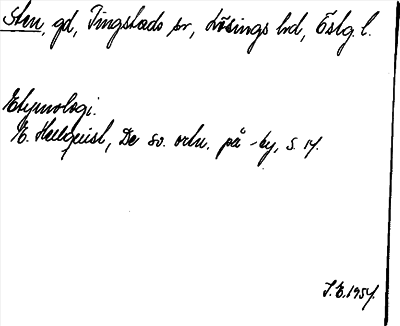 Sten, gd, Tingstads sn, Lösings hd, Östg. l.
Etymologi.
E. Hellquist, De sv. ortn. på -by, s. 17.
S. E. 1957.